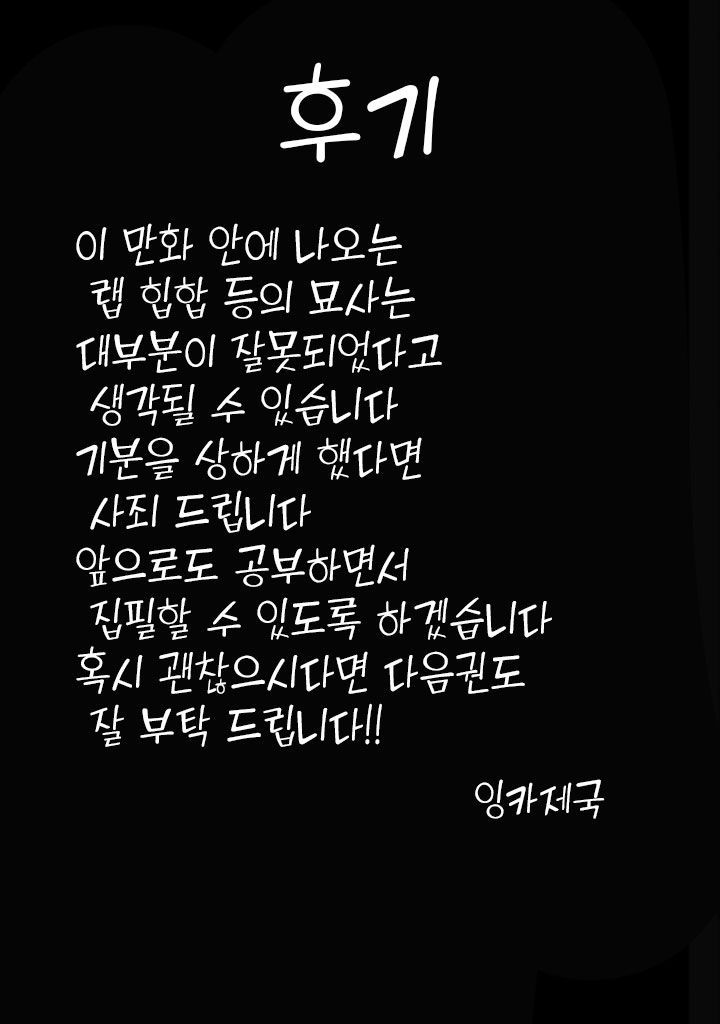 후기
이 만화 안에 나오는
랩 힙합 등의 묘사는
대부분이 잘못되었다고
생각될 수 있습니다
기분을 상하게 했다면
사죄 드립니다
앞으로도 공부하면서
집필할 수 있도록 하겠습니다
혹시 괜찮으시다면 다음권도
잘 부탁 드립니다!!
잉카제국